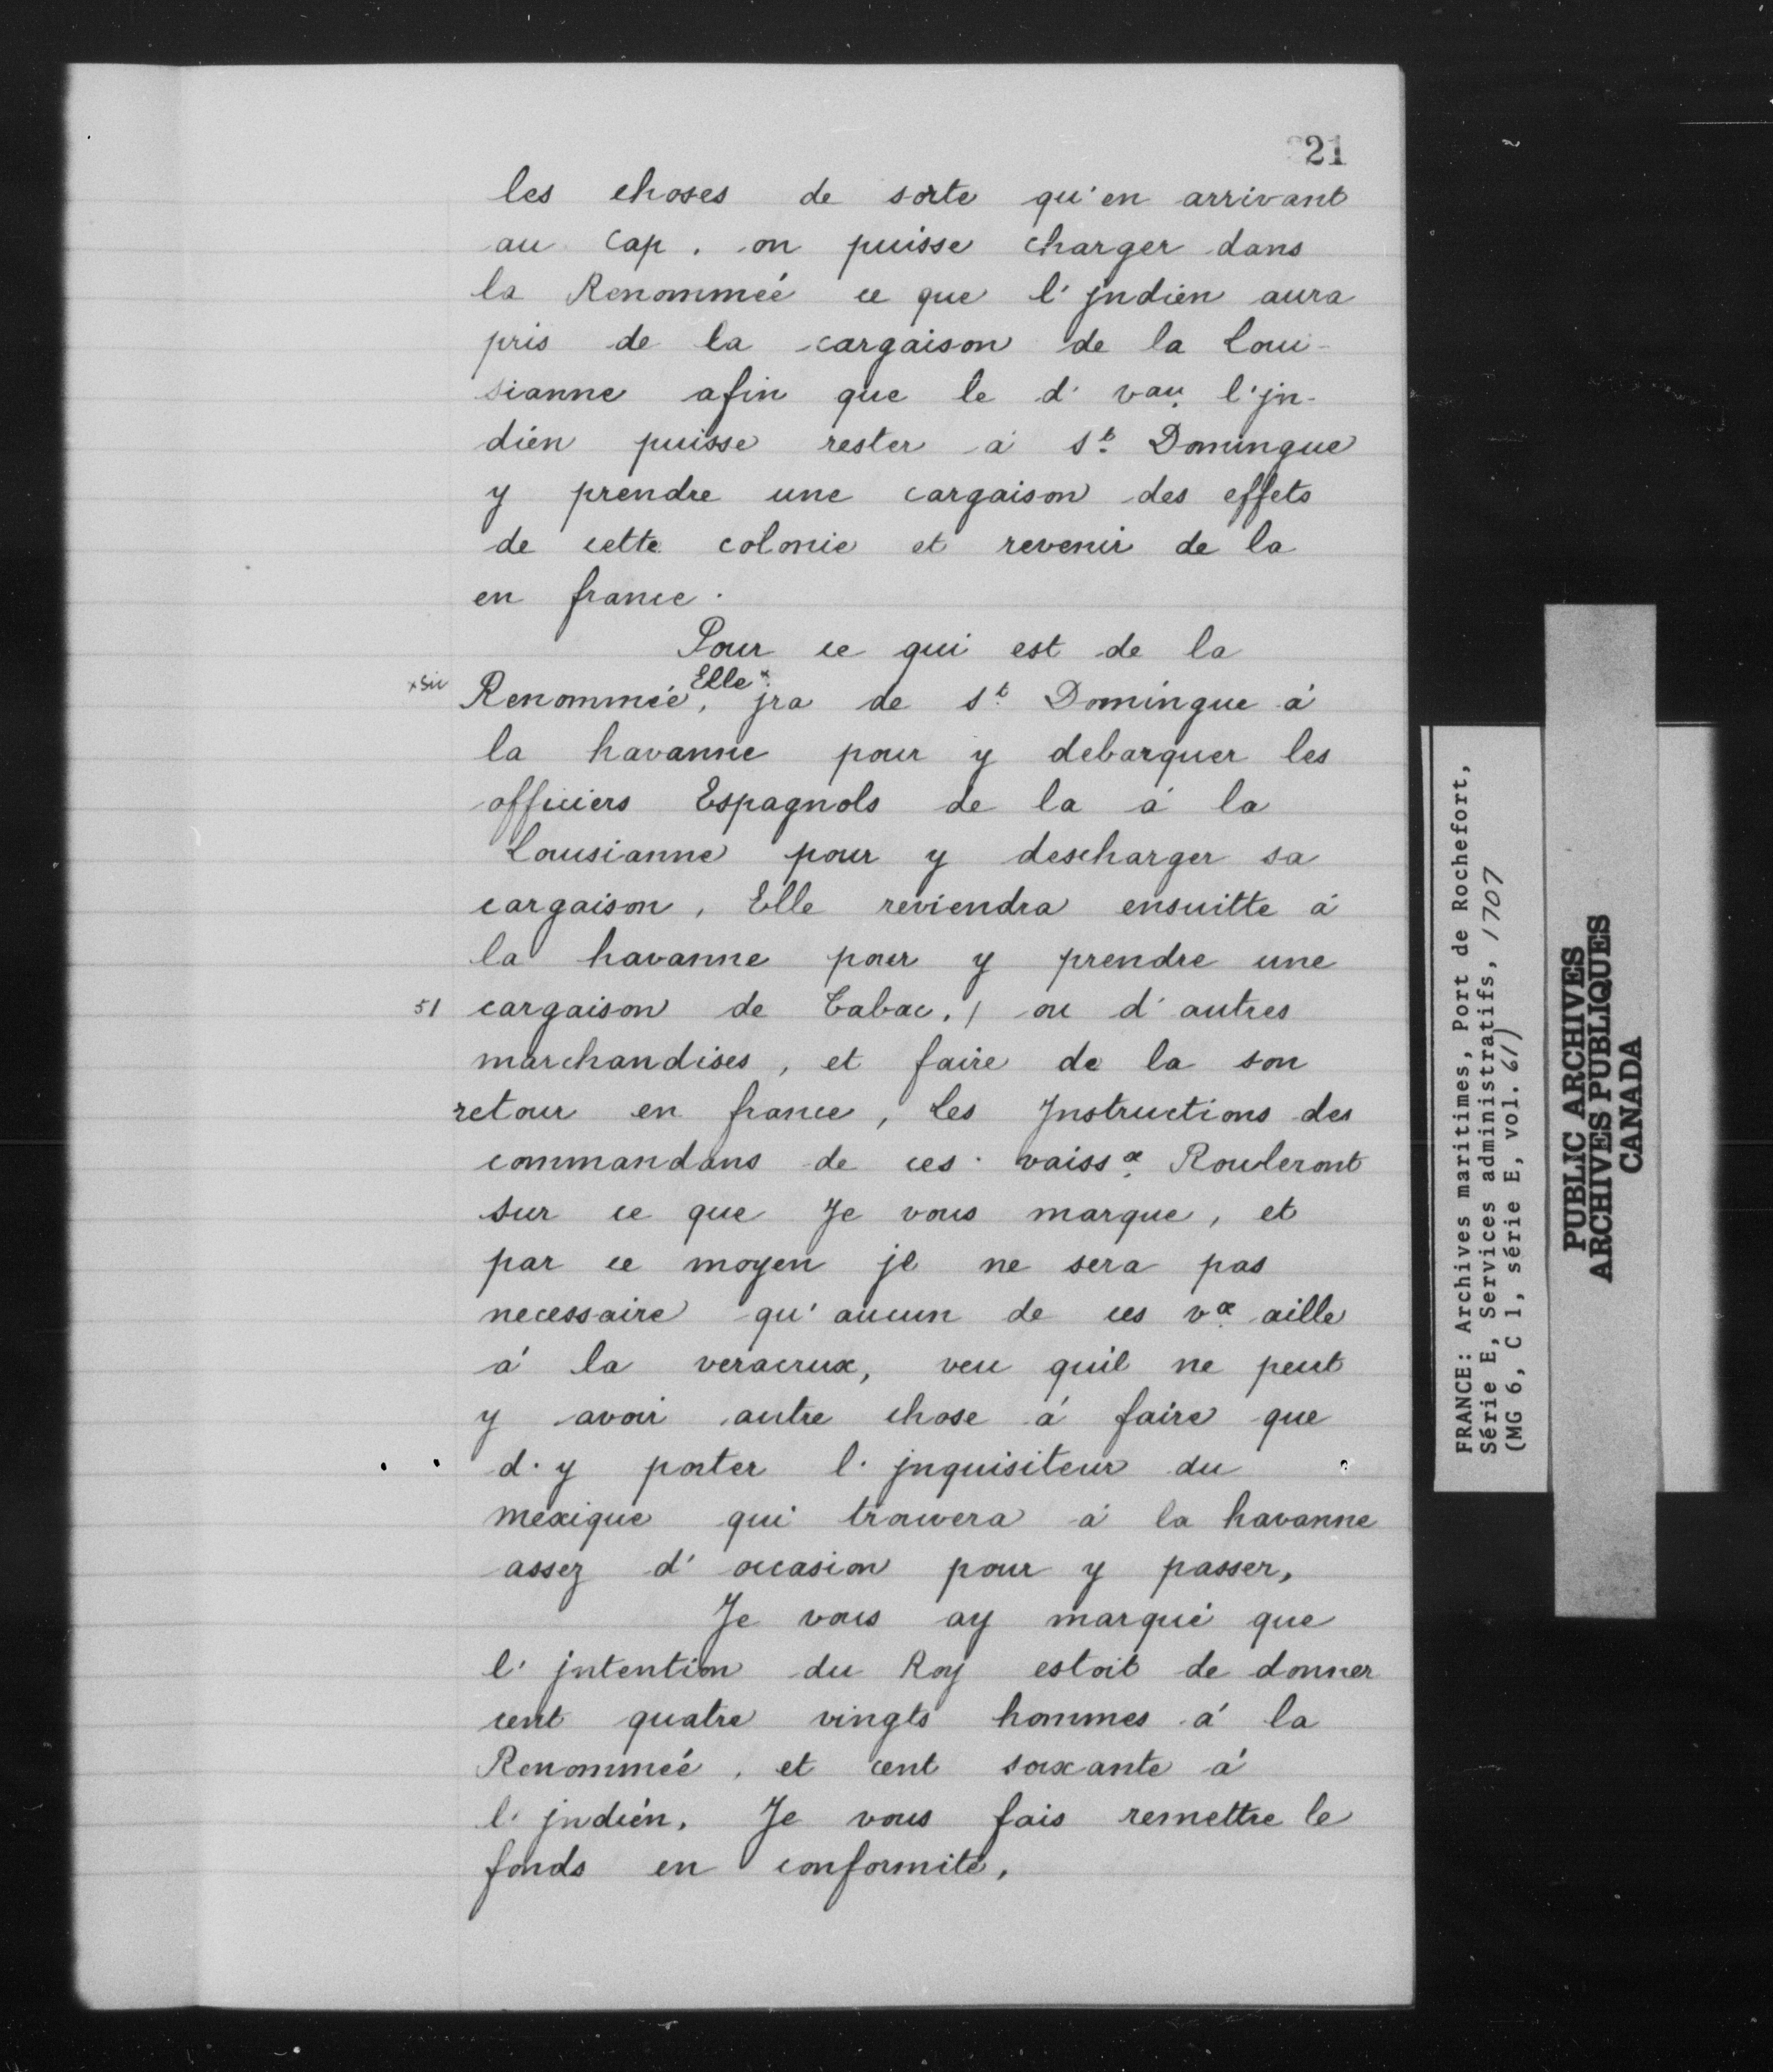 21
les choses de sorte qu'en arrivant
au Cap, on puisse charger dans
la Renommeé ce que l'jndien aura
pris de la cargaison de la Loui-
sianne afin que le d' vau. l'jn-
dien puisse rester à St. Domingue
y prendre une cargaison des effets
de cette colonie et revenir de la
en france.
Pour ce qui est de la
xsic Renommée, Elle x jra de St. Domingue à
la havanne pour y debarquer les
officiers Espagnols de la à la
Louisianne pour y descharger sa
cargaison, Elle reviendra ensuitte à
la havanne pour y prendre une
51 cargaison de tabac, / ou d'autres
marchandises, et faire de la son
retour en france, les Jnstructions des
commandans de ces vaissx. Rouleront
sur ce que Je vous marque, et
par ce moyen jl ne sera pas
necessaire qu'aucun de ces vx. aille
à la veracrux, veu quil ne peut
y avoir autre chose à faire que
d'y porter l'jnquisiteur du
mexique qui trouvera à la havanne
assez d'occasion pour y passer,
Je vous ay marqué que
l'jntention du Roy estoit de donner
cent quatre vingts hommes à la
Renommeé, et cent soixante à
l'jndién. Je vous fais remettre le
fonds en conformité,
FRANCE: Archives maritimes, Port de Rochefort,
Série E, Services administratifs, 1707
(MG 6, C 1, série E, vol. 61)
PUBLIC ARCHIVES
ARCHIVES PUBLIQUES
CANADA